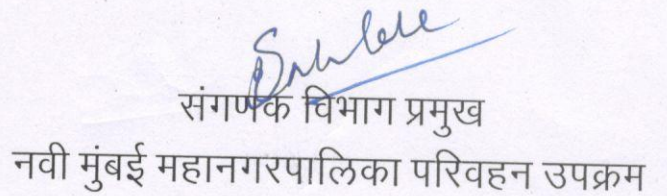 संगणक विभाग प्रमुख
नवी मुंबई महानगरपालिका परिवहन उपक्रम